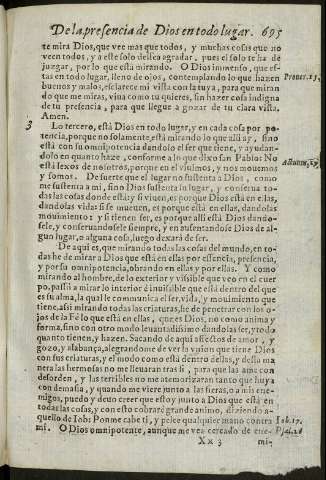 De la presencia de Dios en todo lugar. 695
te mira Dios, que vee mas que todos, y muchas cosas que no
veen todos, y a este solo dessea agradar, pues el solo te ha de
juzgar, por lo que està mirando. O Dios immenso, que es-
tas en todo lugar, lleno de ojos, contemplando lo que hazen
Prouer. 15.
buenos y malos, esclarece mi vista con la tuya, para que miran
do que me miras, viua como tu quieres, sin hazer cosa indigna
de tu presencia, para que llegue a gozar de tu clara vista.
Amen.
3 Lo tercero, està Dios en todo lugar, y en cada cosa por po-
tencia, porque no solamente està mirando lo que allí ay, sino
està con su omnipotencia dandole el ser que tiene, y ayudan-
dolo en quanto haze, conforme a lo que dixo san Pablo: No
està lexos de nosotros, porque en el viuimos, y nos mouemos
y somos. De suerte que el lugar no sustenta à Dios, como
me sustenta a mi, sino Dios sustenta al lugar, y conserua to-
das las cosas donde està: y si viuen, es porque Dios està en ellas,
dandolas vida: si se mueuen, es porque està en ellas, dandolas
mouimiento: y si tienen ser, es porque allí està Dios dando-
sele, y conseruandosele siempre, y en ausentandose Dios de al-
gun lugar, o alguna cosa, luego dexarà de ser.
De aqui es, que mirando todas las cosas del mundo, en to-
das he de mirar a Dios que està en ellas por essencia, presencia,
y por su omnipotencia, obrando en ellas y por ellas. Y como
mirando al hombre, de lo exterior y visible que veo en el cuer
po, passo a mirar lo interior è inuisible que està dentro del que
es su alma, la qual le communica el ser, vida, y mouimiento que
tiene, assi mirando todas las criaturas, he de penetrar con los o-
jos de la Fè lo que està en ellas, que es Dios, no como anima y
forma, sino con otro modo leuantadissimo dandolas ser, y todo
quanto tienen, y hazen. Sacando de aqui affectos de amor, y
gozo, y alabança, alegrandome de ver la vnion que tiene Dios
con sus criaturas, y el modo como està dentro dellas, y desta ma
nera las hermosas no me lleuaran tras si, para que las ame con
desorden, y las terribles no me atemorizaran tanto que huya
con demasia, y quando me viere junto a las fieras, o a mis ene-
migos, puedo y deuo creer que estoy junto a Dios que està en
todas las cosas, y con esto cobrarè grande animo, diziendo a-
quello de Iob: Ponme cabe ti, y pelee qualquier mano contra
Iob. 17.
mi. O Dios omnipotente, aunque me vea cercado de ene-
Xx 3 mi-